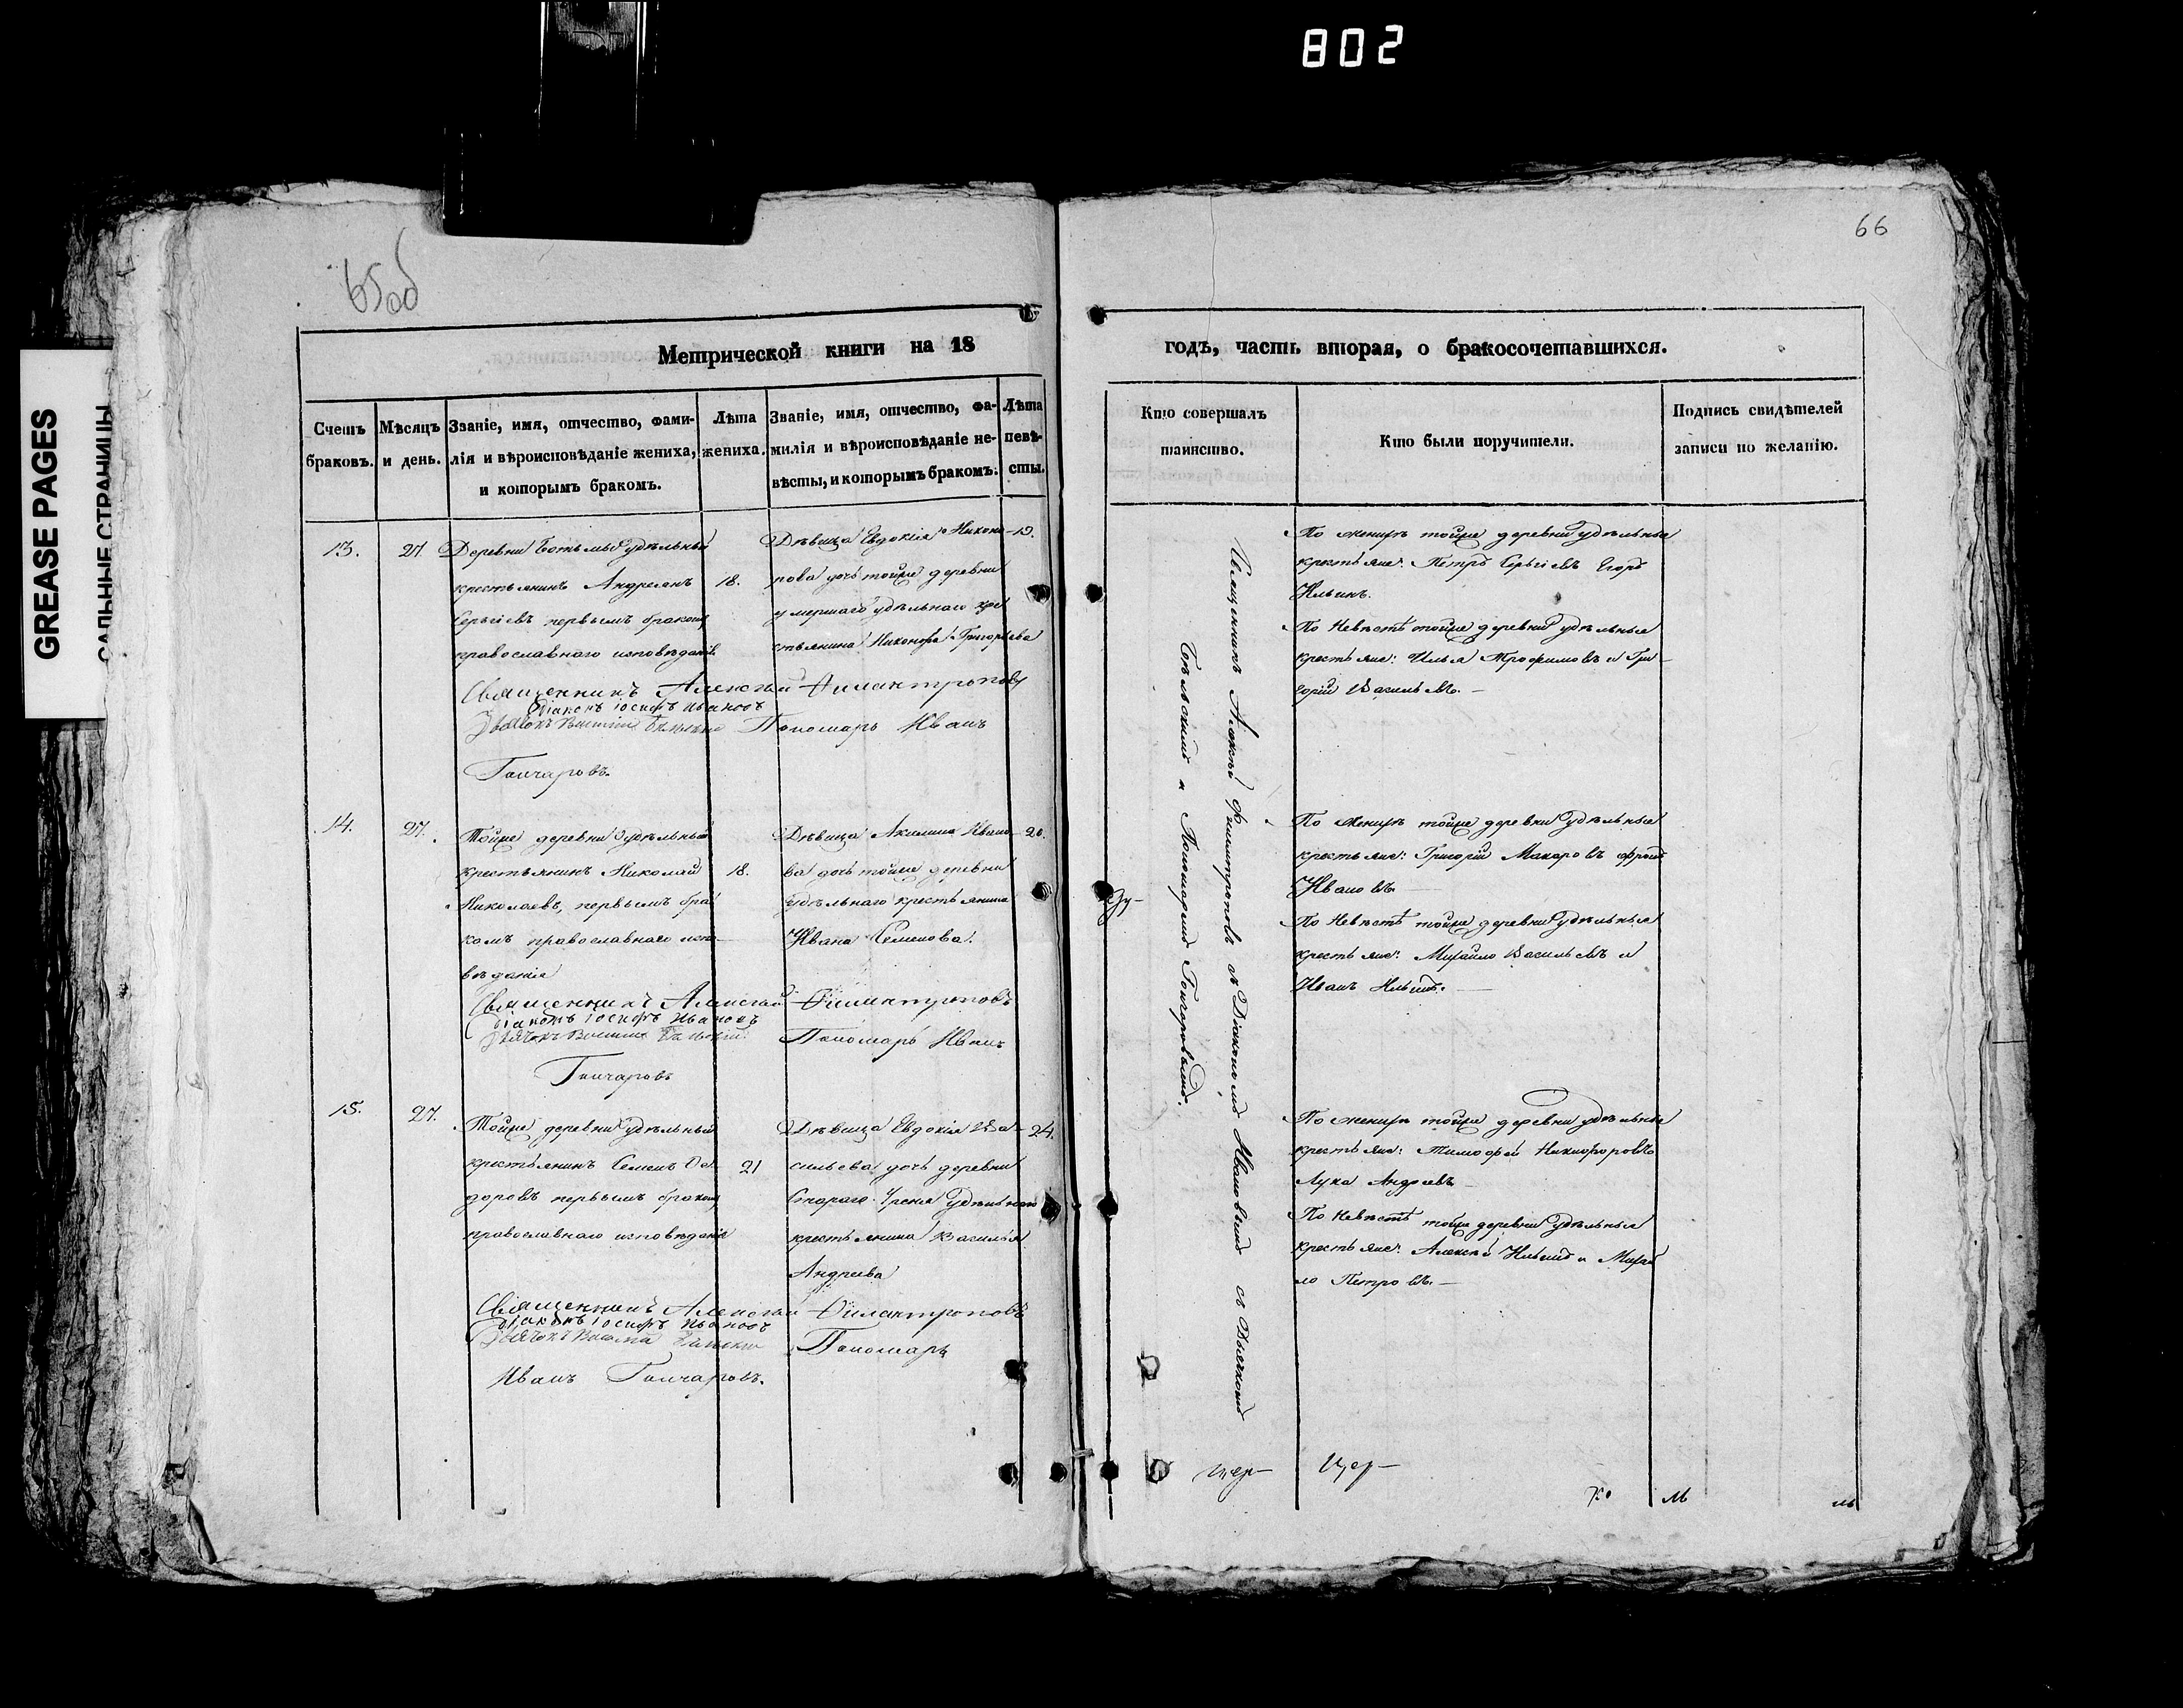 802
GREASE PAGES
САЛЬНЫЕ СТРАНИЦЫ
65об
66
Метрической книги на 18
годъ, часть вторая, о бракосочетавшихся.
Счетъ браковъ.
Мѣсяцъ и день.
Званіе, имя, отчество, фами-
лія и вѣроисповѣданіе жениха,
и которымъ бракомъ.
Лѣта
жениха.
Званіе, имя, отчество, фа-
милія и вѣроисповѣданіе не-
вѣсты, и которымъ бракомъ.
Лѣта
невѣ-
сты.
Кто совершалъ
таинство.
Кто были поручители.
Подпись свидѣтелей
записи по желанію.
13.
27.
Деревни удѣльный
крестьянинъ Андреянъ
Сергіевъ первымъ бракомъ
православнаго исповѣданія
18.
Дѣвица Евдокія Никоно-
рова дочь тойже деревни
умершаго удѣльнаго кре
стьянина Никонора Григорьева
19.
Священникъ Алексѣй Филантроповъ
Діаконъ Іосифъ Ивановъ
Дьячокъ Бѣльскій Пономарь Иванъ
Гончаровъ.
По женихѣ тойже деревни удѣльные
крестьяне: Петръ Сергіевъ Егоръ
Ильинъ.
По Невѣстѣ тойже деревни удѣльные
крестьяне: Илья Трофимовъ и Гри-
горій Васильевъ.
14.
27.
Тойже деревни удѣльный
крестьянинъ Николай
Николаевъ, первымъ бра
комъ православнаго испо-
вѣданія
18.
Дѣвица Акилина Ивано-
ва дочь тойже деревни
удѣльнаго крестьянина
Ивана Семенова.
20.
Священникъ Алексѣй Филантроповъ
Діаконъ Іосифъ Ивановъ
Дьячокъ Бѣльскій Пономарь Иванъ
Гончаровъ
По женихѣ тойже деревни удѣльные
крестьяне: Григорій Макаровъ
Ивановъ.
По Невѣстѣ тойже деревни удѣльные
крестьяне: Михайло Васильевъ и
Иванъ Ильинъ.
15.
27.
Тойже деревни удѣльный
крестьянинъ Семенъ Ѳе-
доровъ первымъ бракомъ
православнаго исповѣданія
21
Дѣвица Евдокія Ва-
сильева дочь деревни
Стараго Урения удѣльнаго
крестьянина Василья
Андреева
24.
Священникъ Алексѣй Филантроповъ
Діаконъ Іосифъ Ивановъ
Дьячокъ Бѣльскій Пономарь
Иванъ Гончаровъ.
По женихѣ тойже деревни удѣльные
крестьяне: Тимофей Никифоровъ
Лука Андреевъ
По Невѣстѣ тойже деревни удѣльные
крестьяне: Алексѣй Ильинъ и Михай
ло Петровъ.
Священникъ Алексѣй Филантроповъ съ Діакономъ Ивановымъ съ Дьячкомъ
Бѣльскимъ и Пономаремъ Гончаровымъ.